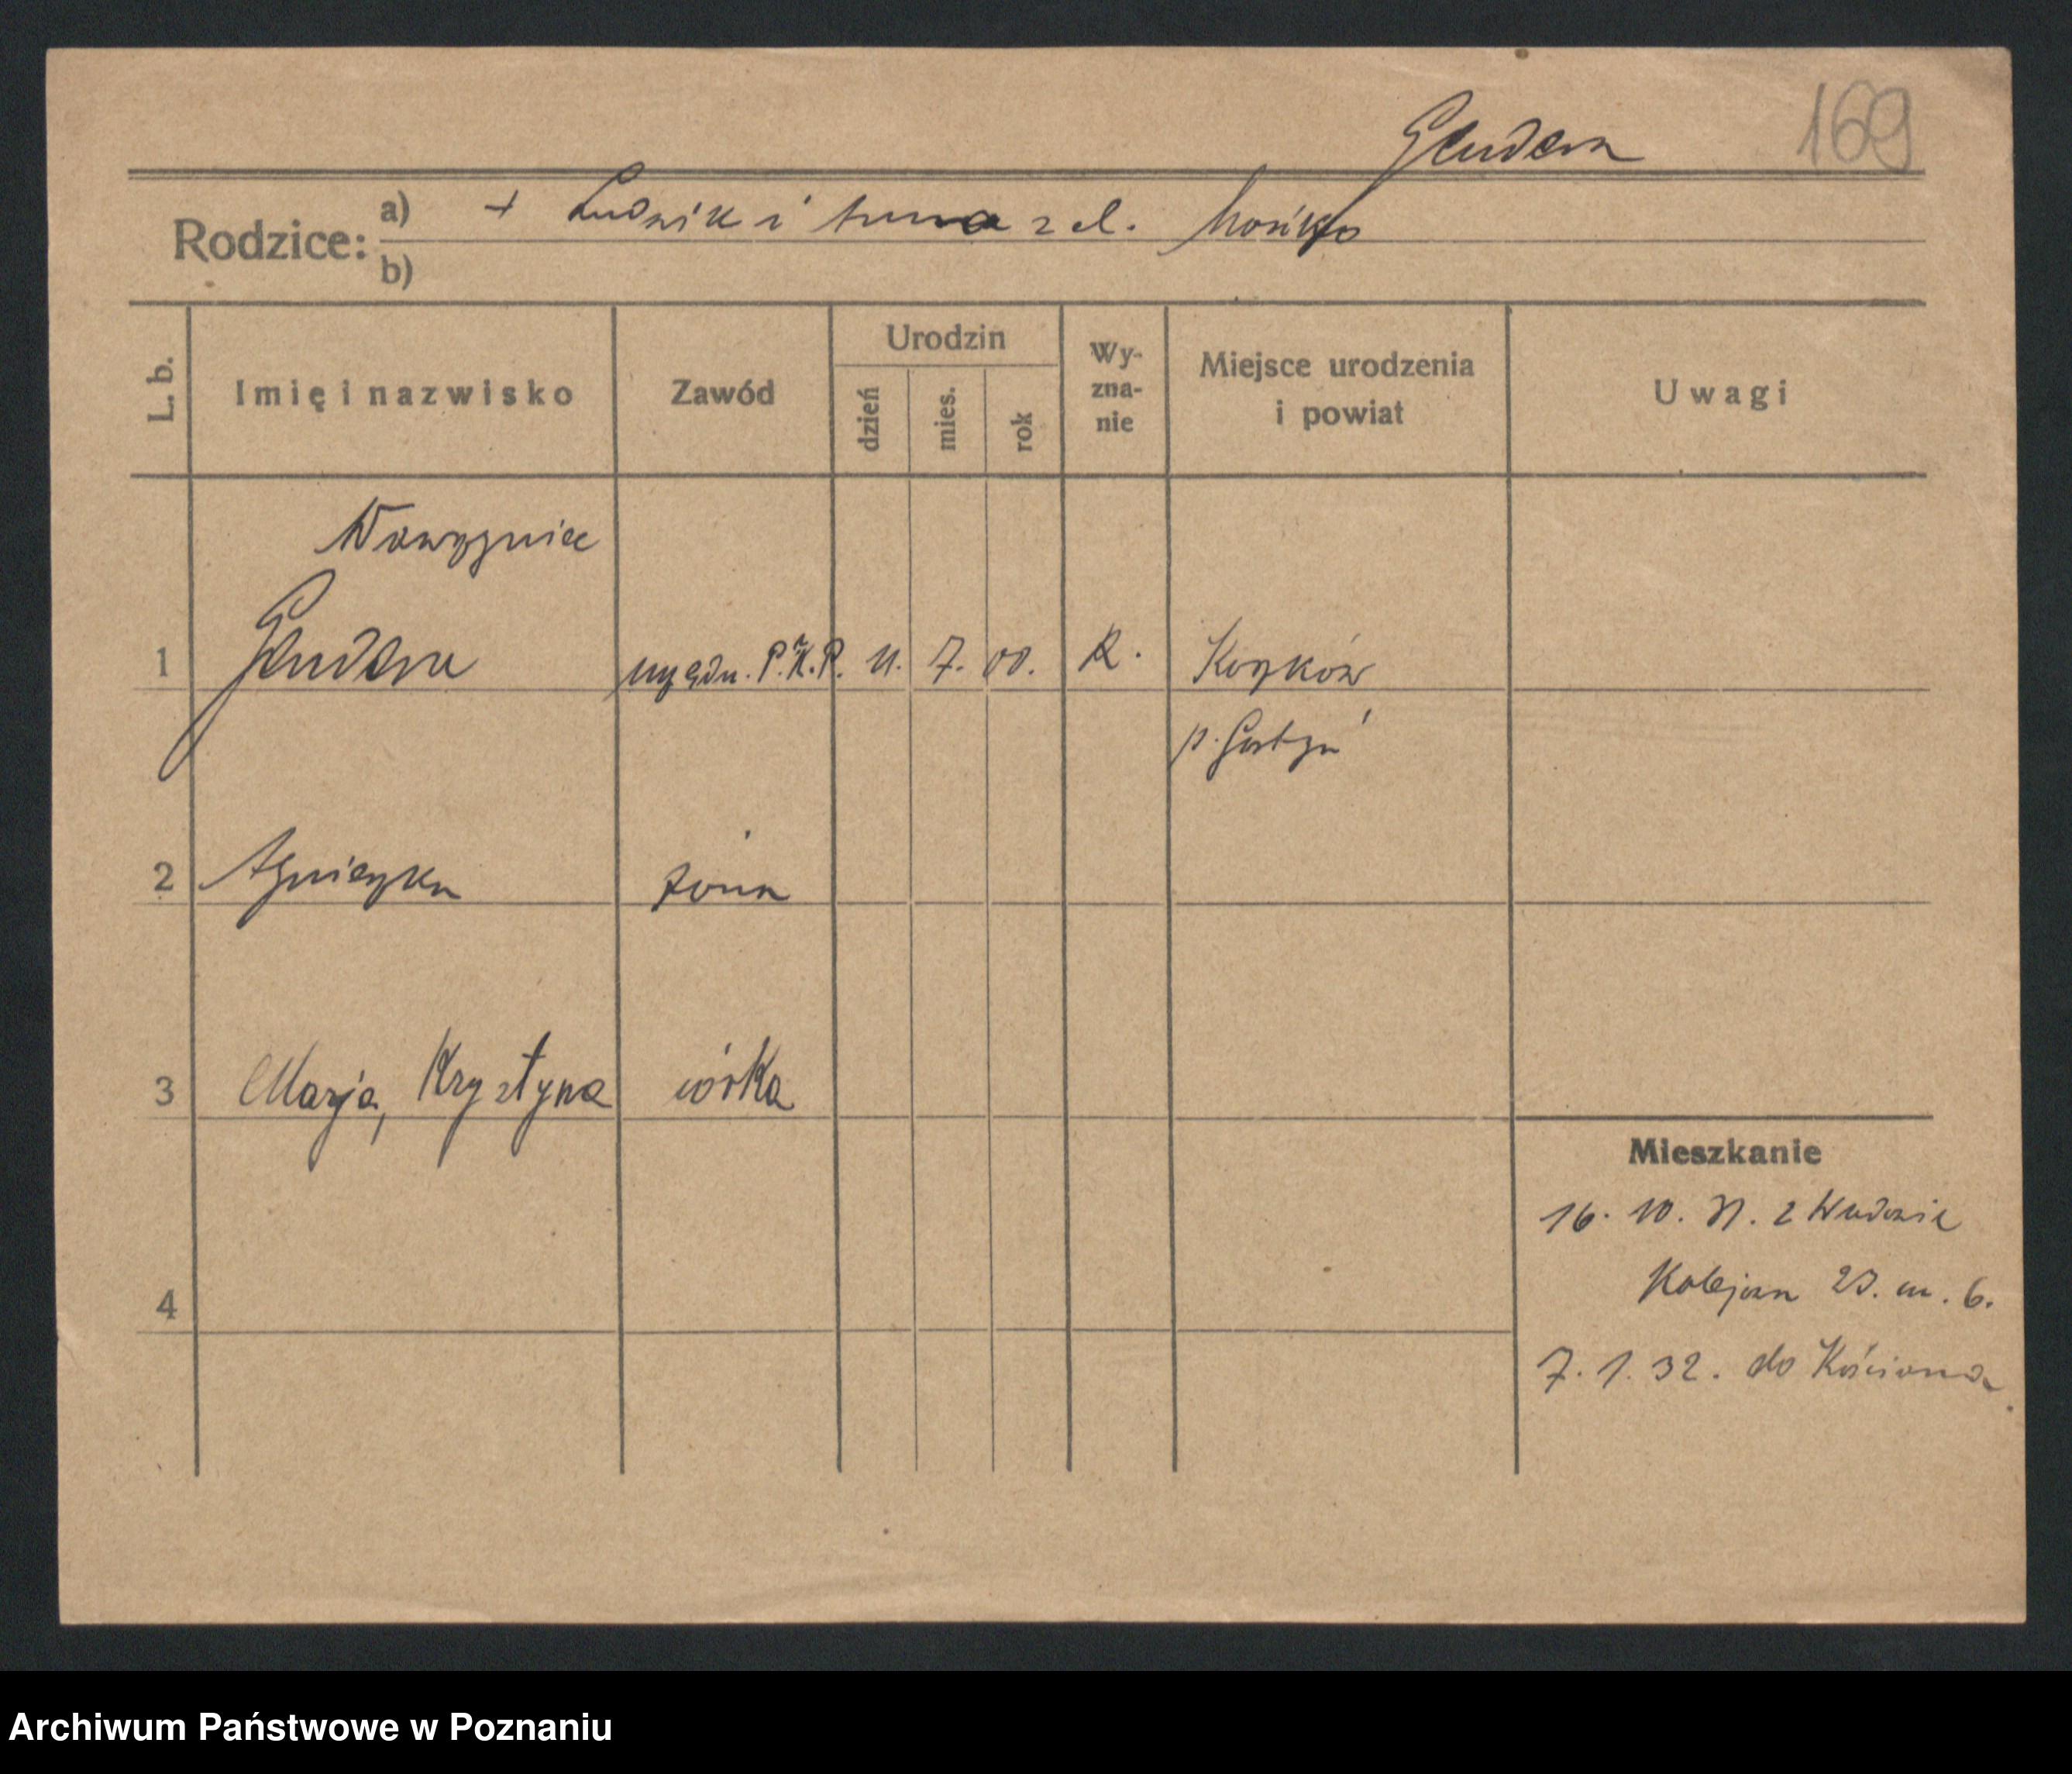 Gendera 169
Rodzice: a) + Ludwik i Anna z d.
b)
L. b. Imię i nazwisko Zawód Urodzin dzień mies. rok Wy-zna-nie Miejsce urodzenia i powiat Uwagi
Wawrzyniec
1 Gendera urzędn. P.K.P. 11. 7. 00. R. Korzków
p. Gostyń
2 Agnieszka żona
3 Marja, Krystyna córka
Mieszkanie
16. 10. 31. z
4 Kolejowa 23. m. 6.
7. 1. 32. do Kościana
Archiwum Państwowe w Poznaniu